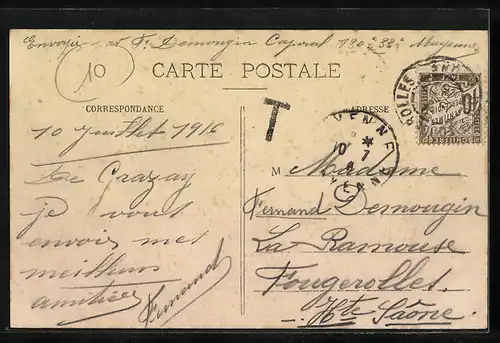 Envoyé Fd Demougin Caporal 130e 33e Mayenne
10
CARTE POSTALE
T
CORRESPONDANCE
ADRESSE
10 Juillet 1916
De Crazay
je vous
envoie mes
meilleurs
amitiées
Fernand
M Madame
Fernand Demougin
La Ramouse
Fougerolles
Hte Saône